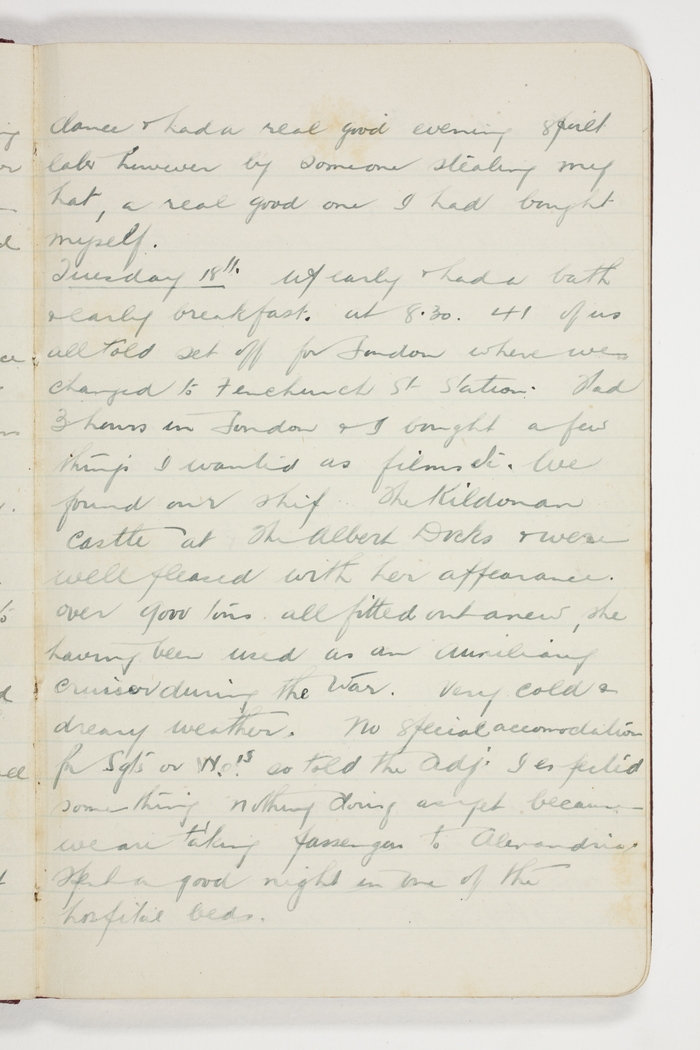 dance & had a real good evening spoilt
later however by someone stealing my
hat, a real good one I had bought
myself.
Tuesday 18th. Up early & had a bath
& early breakfast. at 8.30. 41 of us
all told set off for London where we
changed to Fenchurch St Station. Had
3 hours in London & I bought a few
things I wanted as films etc. We
found our ship The Kildonan
Castle at The Albert Docks & were
well pleased with her appearance.
over 9000 tons. all fitted out anew, she
having been used as an Auxiliary
cruiser during the War. Very cold &
dreary weather. No special accomodation
for Sgts or W.Os so told the Adj. I expected
something nothing doing as yet because
we are taking passengers to Alexandria.
Spent a good night in one of the
hospital beds.